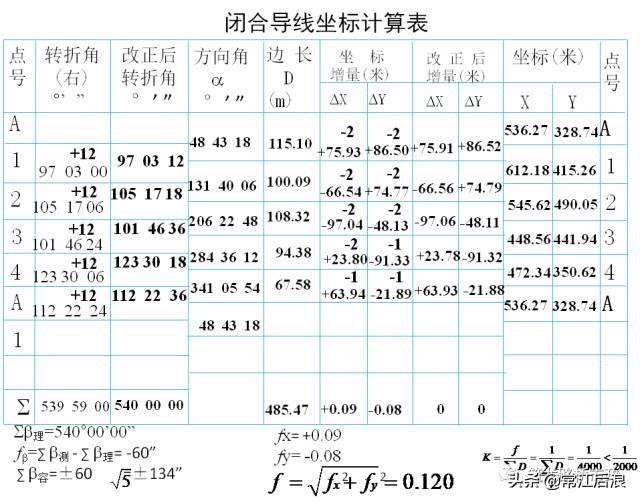 闭合导线坐标计算表
点号 转折角(右) ° ′ ″ 改正后转折角 ° ′ ″ 方向角 α ° ′ ″ 边 长 D (m) 坐 标 增量(米) 改 正 后 增量(米) 坐标(米) 点号
ΔX ΔY ΔX ΔY X Y
A 536.27 328.74 A
48 43 18 115.10 -2 +75.93 -2 +86.50 +75.91 +86.52
1 +12 97 03 00 97 03 12 612.18 415.26 1
131 40 06 100.09 -2 -66.54 -2 +74.77 -66.56 +74.79
2 +12 105 17 06 105 17 18 545.62 490.05 2
206 22 48 108.32 -2 -97.04 -2 -48.13 -97.06 -48.11
3 +12 101 46 24 101 46 36 448.56 441.94 3
284 36 12 94.38 -2 +23.80 -1 -91.33 +23.78 -91.32
4 +12 123 30 06 123 30 18 472.34 350.62 4
341 05 54 67.58 -1 +63.94 -1 -21.89 +63.93 -21.88
A +12 112 22 24 112 22 36 536.27 328.74 A
48 43 18
1
Σ 539 59 00 540 00 00 485.47 +0.09 -0.08 0 0
Σβ理=540°00′00″
fβ=∑β测-∑β理= -60″
∑β容=±60 √5 ±134″
fx= +0.09
fy= -0.08
f = √fx²+fy² = 0.120
K = f/∑D = 1/∑D = 1/4000 < 1/2000
头条@常江后浪